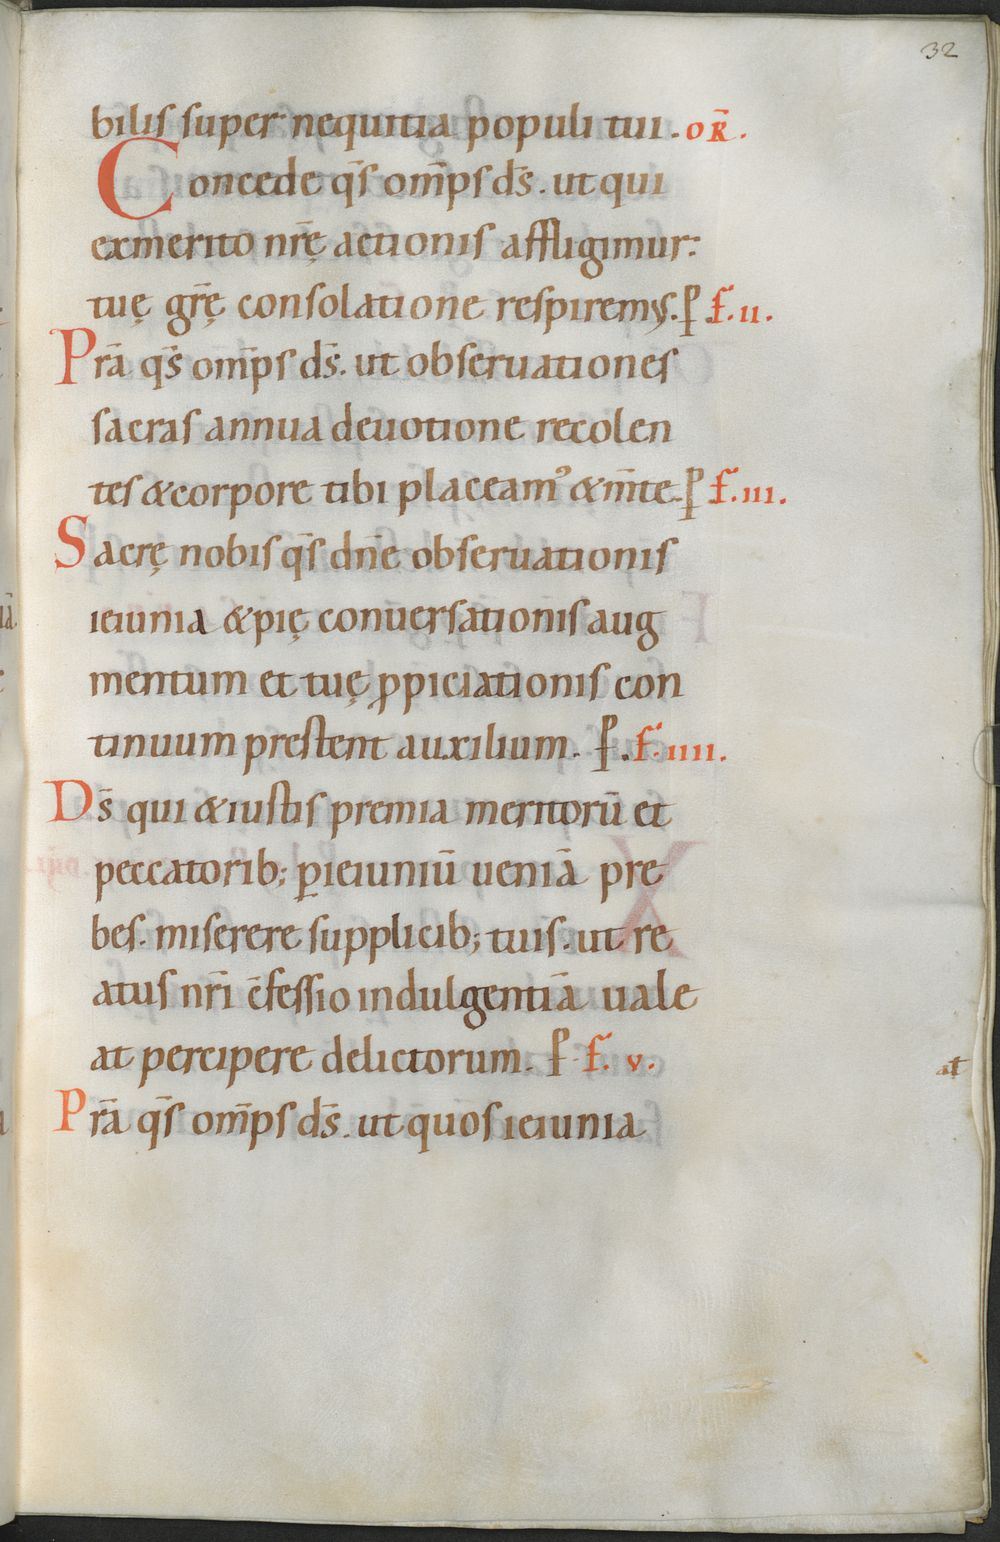 32
bilis super nequitia populi tui. OR̄.
Concede qs̄ omp̄s ds̄. ut qui
exmerito nrę̄ actionis affligimur:
tuę grę̄ consolatione respiremus. P F. II.
Prā qs̄ omp̄s ds̄. ut obseruationes
sacras annua deuotione recolen
tes & corpore tibi placeam᾿ & m̄te. P F. III.
Sacrę nobis qs̄ dn̄e obseruationis
ieiunia & pię conuersationis aug
mentum et tuę ꝓpiciationis con
tinuum prestent auxilium. P. F. IIII.
Ds̄ qui & iustis premia meritorū et
peccatorib; ꝑ ieiuniū ueniā pre
bes. miserere supplicib; tuis. ut re
atus nrī c̄fessio indulgentiā uale
at percipere delictorum. P. F. V.
at
Prā qs̄ omp̄s ds̄. ut quos ieiunia